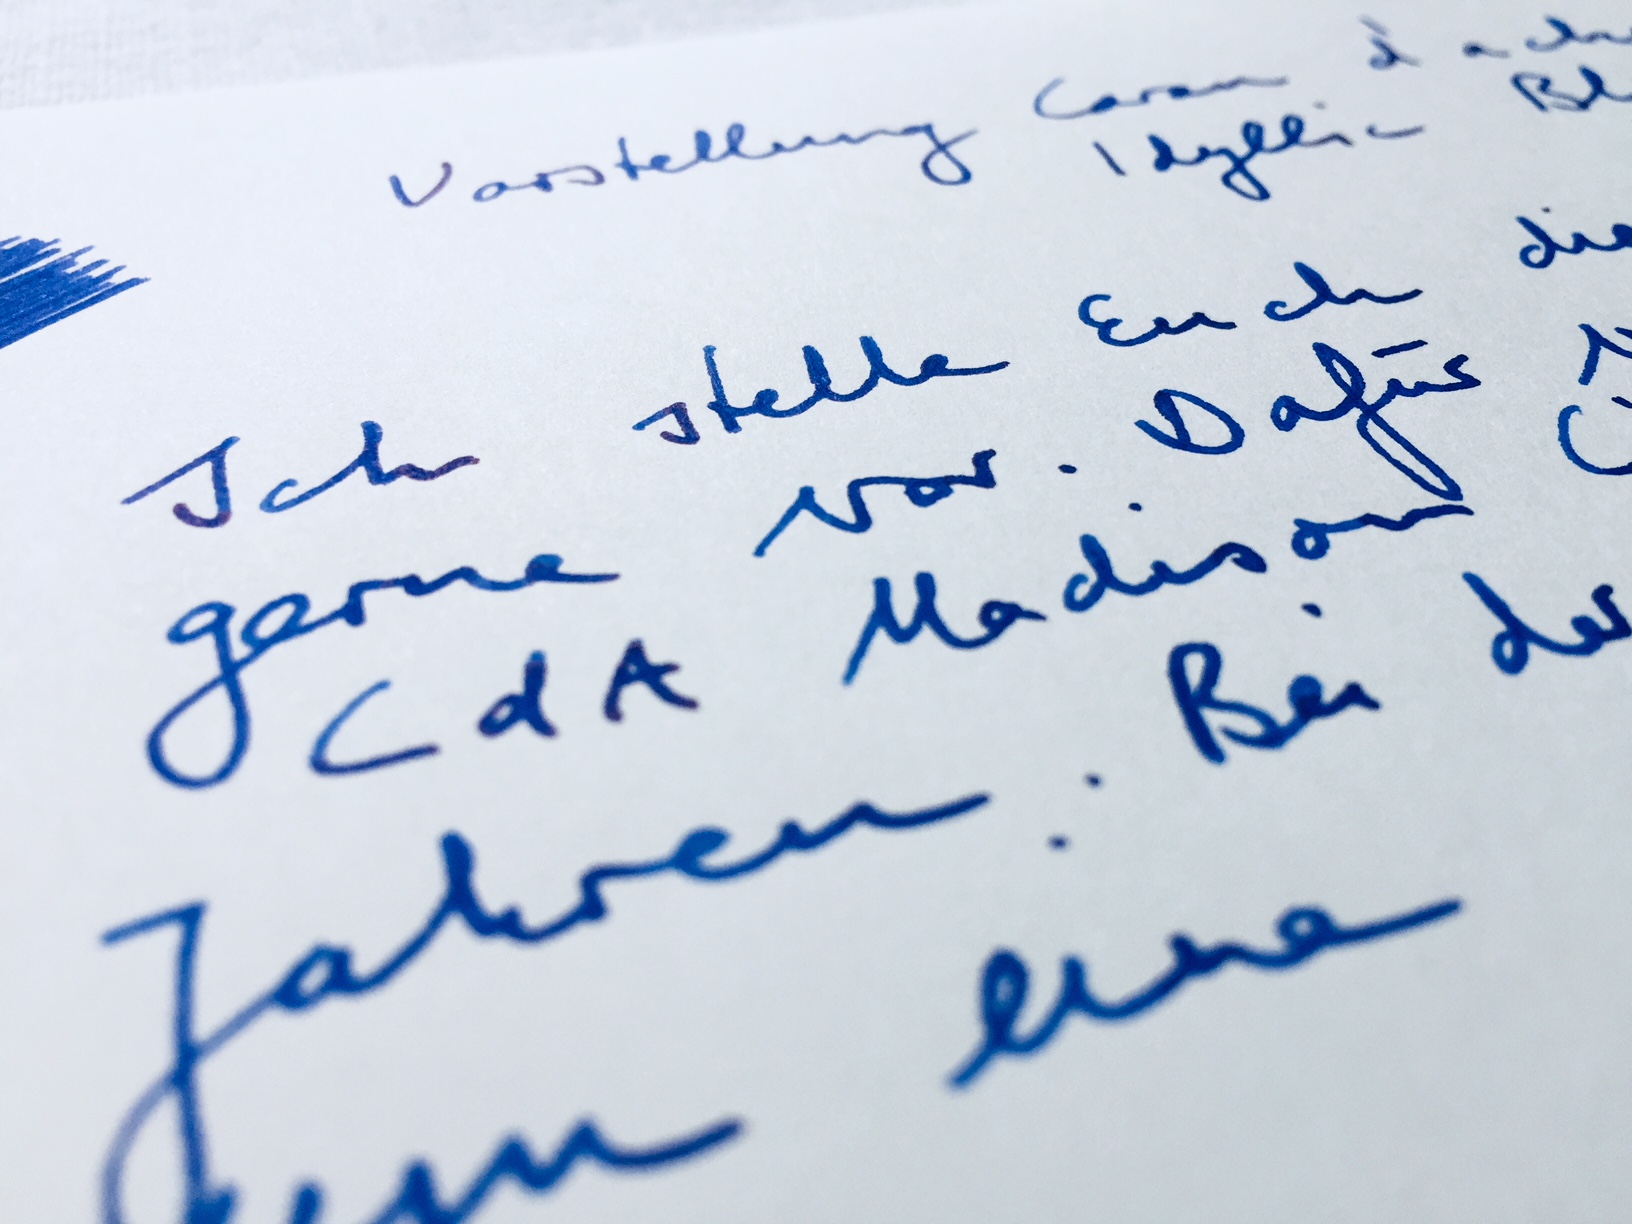 Vorstellung Caran d'ache
Idyllic Bl
Ich stelle Euch die
gerne vor. Dafür
CdA Madison
Jahren. Bei der
eine